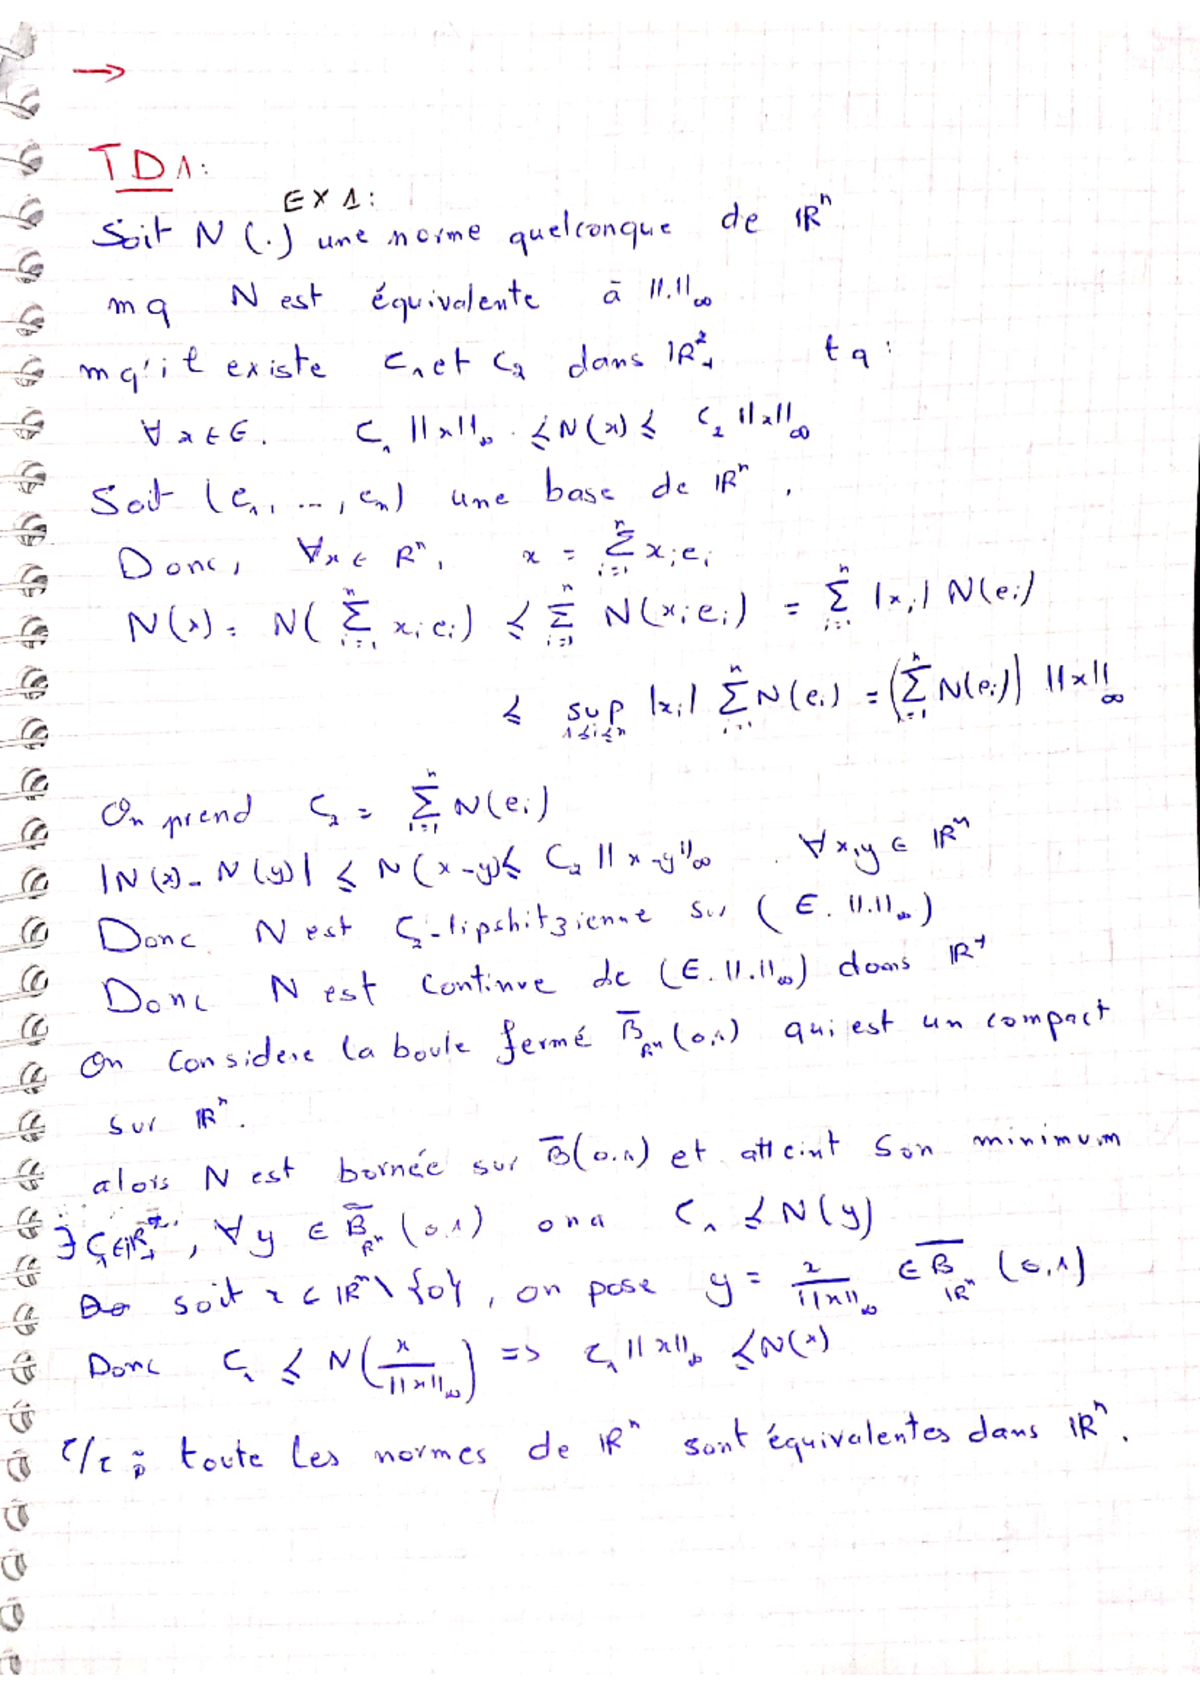 →
TD1:
EX 1:
Soit N(.) une norme quelconque de ℝⁿ
mq N est équivalente à ||.||∞
mq'il existe C₁ et C₂ dans ℝ²₊ tq:
∀x∈E. C₁ ||x||∞ ≤ N(x) ≤ C₂ ||x||∞
Soit (e₁, ..., eₙ) une base de ℝⁿ,
Donc, ∀x∈ℝⁿ, x = Σⁿᵢ₌₁ xᵢeᵢ
N(x) = N( Σⁿᵢ₌₁ xᵢeᵢ) ≤ Σⁿᵢ₌₁ N(xᵢeᵢ) = Σⁿᵢ₌₁ |xᵢ| N(eᵢ)
≤ sup 1≤i≤n |xᵢ| Σⁿᵢ₌₁ N(eᵢ) = (Σⁿᵢ₌₁ N(eᵢ)) ||x||∞
On prend C₂ = Σⁿᵢ₌₁ N(eᵢ)
|N(x) - N(y)| ≤ N(x-y) ≤ C₂ ||x-y||∞ . ∀x,y ∈ ℝⁿ
Donc N est C₂-lipshitzienne sur (E. ||.||∞)
Donc N est continue de (E. ||.||∞) dans ℝ⁺
On considere la boule fermé B̅ℝⁿ(0,1) qui est un compact
sur ℝⁿ.
alors N est bornée sur B̅(0.1) et atteint son minimum
∃ C₁∈ℝ*₊, ∀y ∈ B̅ℝⁿ(0.1) ona C₁ ≤ N(y)
Do soit x ∈ ℝⁿ\{0}, on pose y = x/||x||∞ ∈ B̅ℝⁿ(0,1)
Donc C₁ ≤ N(x/||x||∞) => C₁||x||∞ ≤ N(x)
C/C : toute les normes de ℝⁿ sont équivalentes dans ℝⁿ.